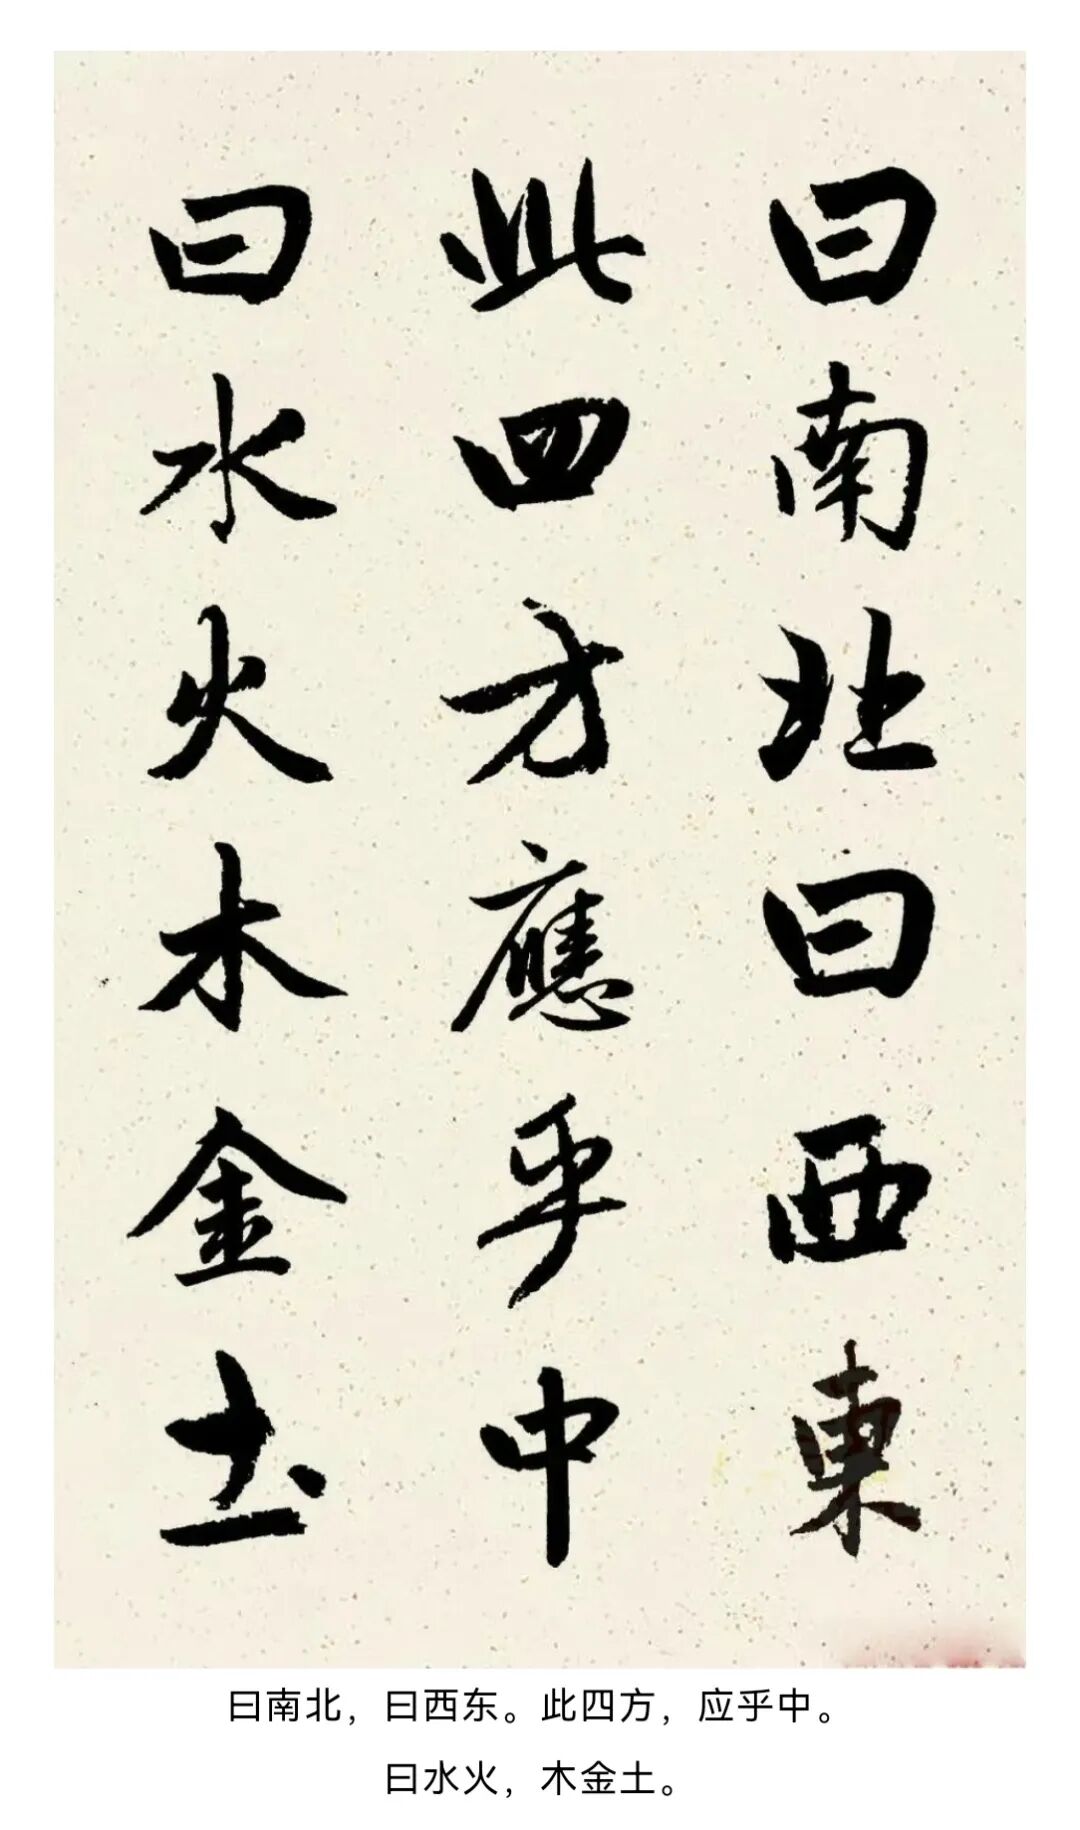 曰南北曰西東
此四方應乎中
曰水火木金土
曰南北，曰西东。此四方，应乎中。
曰水火，木金土。